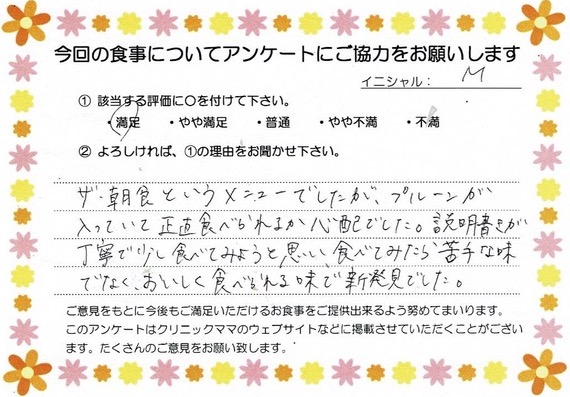 今回の食事についてアンケートにご協力をお願いします
イニシャル： M
① 該当する評価に○を付けて下さい。
・満足 ・やや満足 ・普通 ・やや不満 ・不満
② よろしければ、①の理由をお聞かせ下さい。
ザ・朝食というメニューでしたが、プルーンが
入っていて正直食べられるか心配でした。説明書きが
丁寧で少し食べてみようと思い、食べてみたら苦手な味
でなく、おいしく食べられる味で新発見でした。
ご意見をもとに今後もご満足いただけるお食事をご提供出来るよう努めてまいります。
このアンケートはクリニックママのウェブサイトなどに掲載させていただくことがござい
ます。たくさんのご意見をお願い致します。